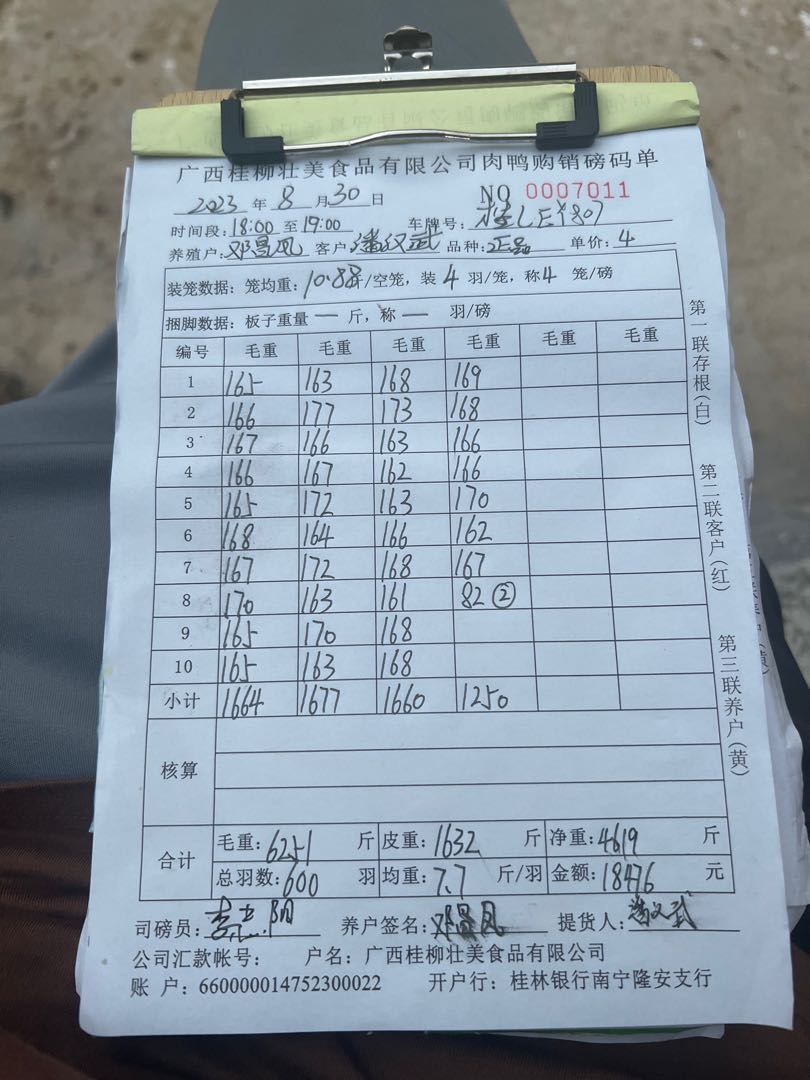 广西桂柳壮美食品有限公司肉鸭购销磅码单
2023 年 8 月 30 日 NO 0007011
时间段: 18:00 至 19:00 车牌号: 桂LEY807
养殖户: 邓昌凤 客户: 潘汉武 品种: 正品 单价: 4
装笼数据: 笼均重: 10.88斤/空笼, 装 4 羽/笼, 称 4 笼/磅
捆脚数据: 板子重量 — 斤, 称 — 羽/磅
编号 毛重 毛重 毛重 毛重 毛重 毛重
1 165 163 168 169
2 166 177 173 168
3 167 166 163 166
4 166 167 162 166
5 165 172 163 170
6 168 164 166 162
7 167 172 168 167
8 170 163 161 82 ②
9 165 170 168
10 165 163 168
小计 1664 1677 1660 1250
核算
合计 毛重: 6251 斤 皮重: 1632 斤 净重: 4619 斤
总羽数: 600 羽 均重: 7.7 斤/羽 金额: 18476 元
司磅员: 养户签名: 邓昌凤 提货人: 潘汉武
公司汇款帐号: 户名: 广西桂柳壮美食品有限公司
账 户: 660000014752300022 开户行: 桂林银行南宁隆安支行
第一联存根(白)
第二联客户(红)
第三联养户(黄)